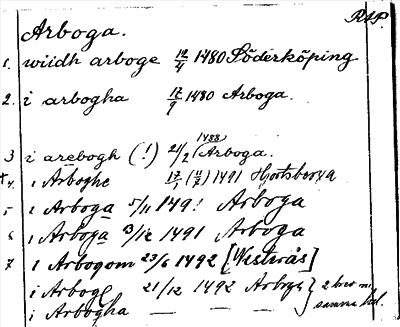 RAP.
Arboga.
1. wiidh arboge 12/4 1480 Söderköping
2. i arbogha 17/9 1480 Arboga.
3 i arebogh (!) 21/2 1488 Arboga.
+4. i Arboghe 17/1 (11/7) 1491 Hjortsberga
5 i Arboga 5/11 149! Arboga
6 i Arboga 3/12 1491 Arboga
7 i Arbogom 23/6 1492 [Westerås]
i Arboge 21/12 1492 Arboga } 2 brev m.
i Arbogha — — — } samma dat.